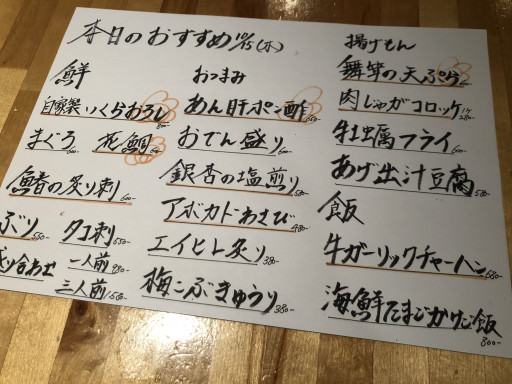 本日のおすすめ 10/15(木)
鮮
自家製いくらおろし 800-
まぐろ 600- 花鯛
鰆の炙り刺 600-
ぶり 550- タコ刺 550-
盛り合わせ 一人前 990-
三人前 1500-
おつまみ
あん肝ポン酢
おでん盛り 600-
銀杏の塩煎り 500-
アボカドわさび 480-
エイヒレ炙り 380-
梅こぶきゅうり 380-
揚げもん
舞茸の天ぷら
肉じゃがコロッケ 280-
牡蠣フライ 600-
あげ出汁豆腐 580-
飯
牛ガーリックチャーハン 680-
海鮮たまごかけご飯 800-